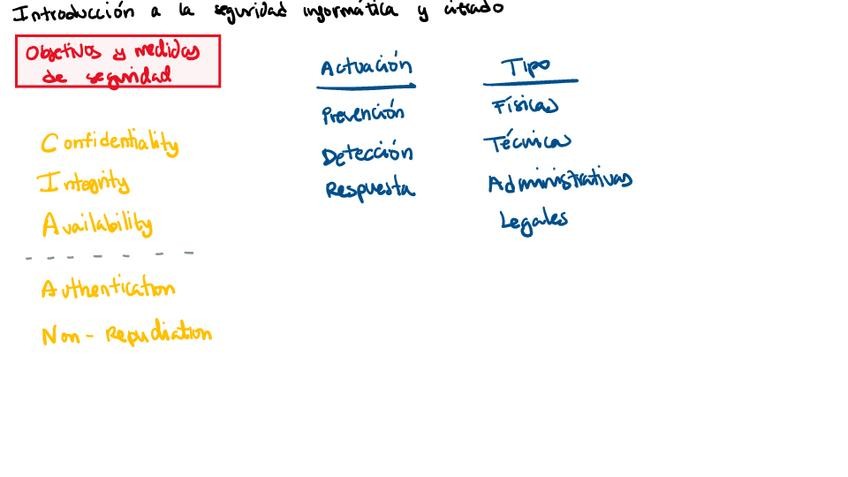 Introducción a la seguridad informática y citado
Objetivos y medidas
de seguridad
Confidentiality
Integrity
Availability
Authentication
Non-Repudiation
Actuación
Prevención
Detección
Respuesta
Tipo
Físicas
Técnicas
Administrativas
Legales